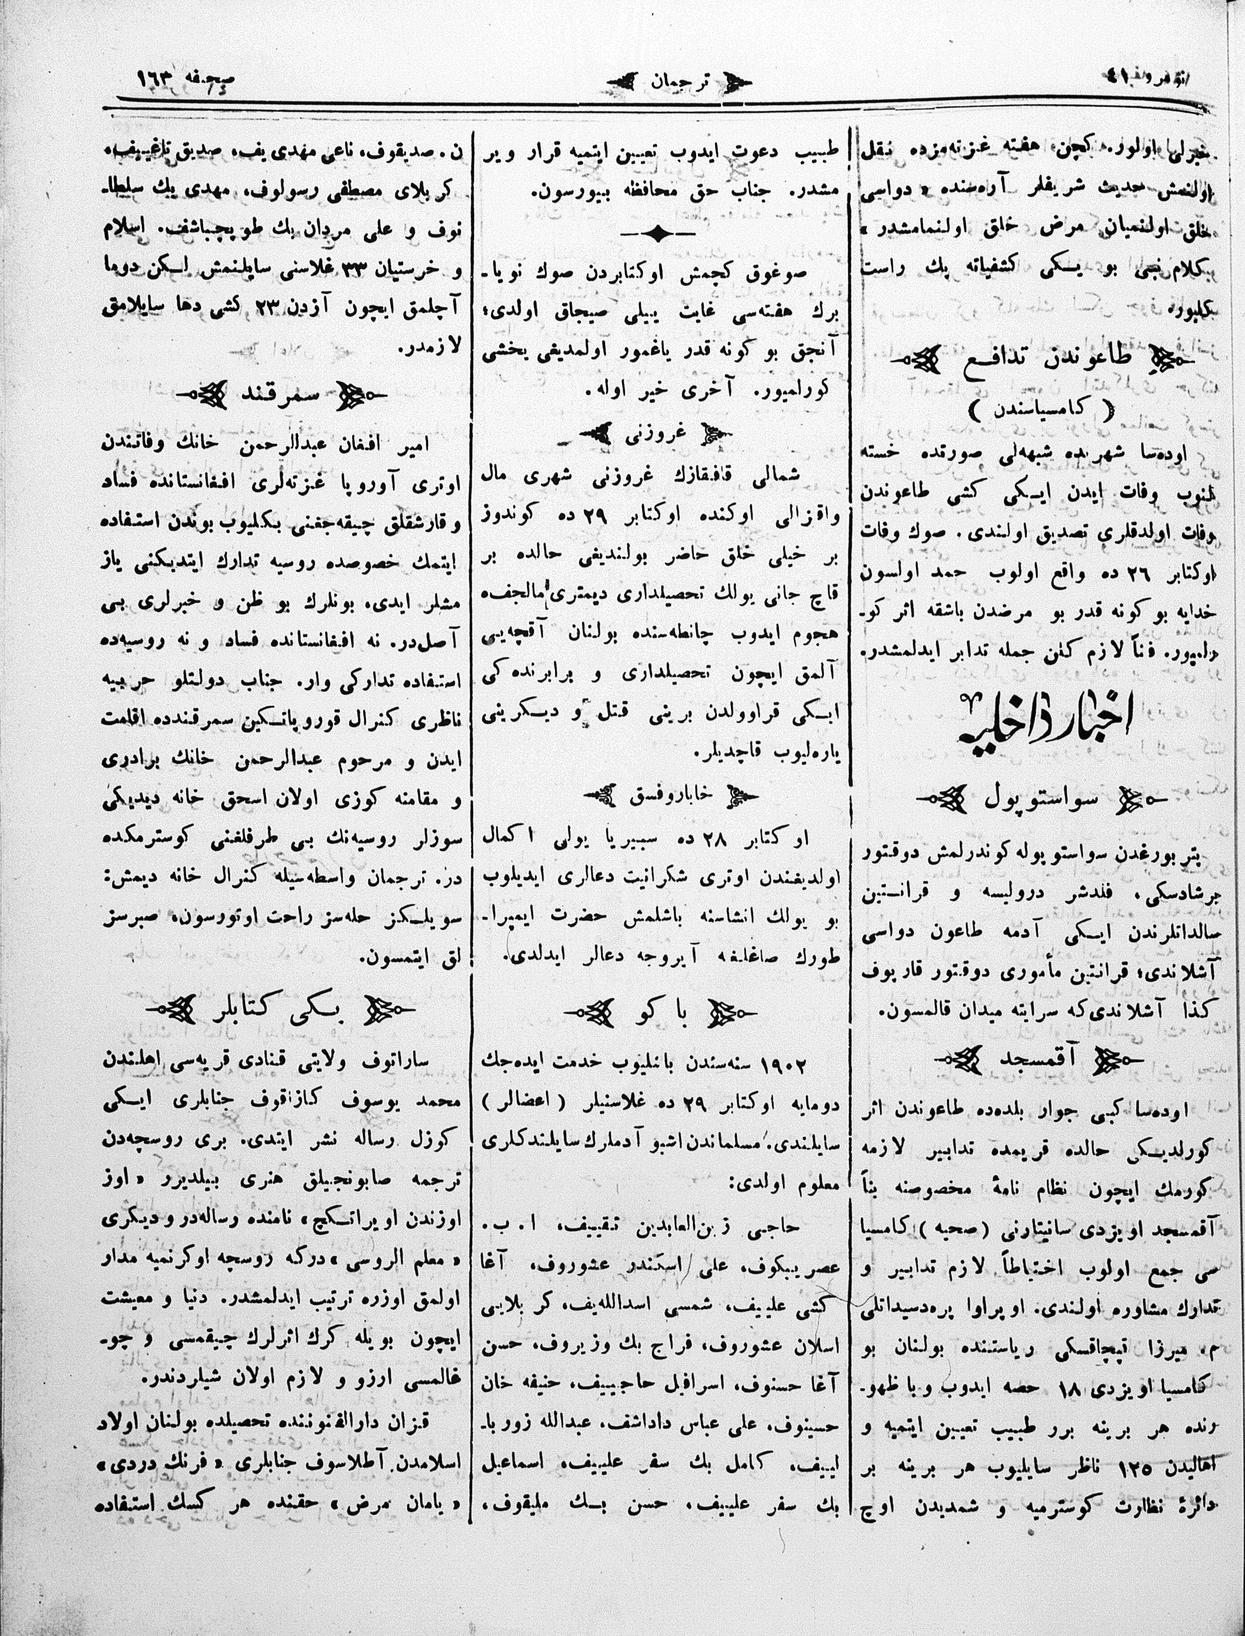 نومرو ٤١
ترجمان
صحیفه ١٦٣
خبرلی اولور. کچن هفته غزته‌مزده نقل
اولنمش حدیث شریفلر آره‌سنده «دواسی
خلق اولنمیان مرض خلق اولنمامشدر»
کلام نبی بو یـکی کشفیاته پك راست
کلیور.
طاعوندن تدافع
( کامسیاسندن )
اوده‌سا شهرنده شبهه‌لی صورتده خسته
لنوب وفات ایدن ایـکی کشی طاعوندن
وفات اولدقلری تصدیق اولندی. صوك وفات
اوکتابر ٢٦ ده واقع اولوب حمد اولسون
خدایه بو کونه قدر بو مرضدن باشقه اثر کو-
رلمیور. فناً لازم کلن جمله تدابر ایدلمشدر.
اخبار داخلیه
سواستوپول
پتربورغدن سواستوپوله کوندرلمش دوقتور
برشادسکی، فلدشر درولیسه و قرانـتین
سالداتلرندن ایـکی آدمه طاعون دواسی
آشلاندی؛ قرانتین مأموری دوقتور قارپوف
کذا آشلاندی‌که سرایته میدان قالمسون.
آقمسجد
اوده‌سا کبی جوار بلده‌ده طاعوندن اثر
کورلدیـکی حالده قریمده تدابیر لازمه
کورمك ایچون نظام نامۀ مخصوصنه بناً
آقمسجد اویزدی سانیتارنی (صحیه) کامسیا
سی جمع اولوب احتیاطاً لازم تدابیر و
تدارك مشاوره اولندی. اوپراوا پره‌دسیداتلی
م. میرزا قپچاقسکی ریاستنده بولنان بو
کامسیا اویزدی ١٨ حصه ایدوب وبا ظهو-
رنده هر برینه برر طبیب تعیین ایتمیه و
اهالیدن ١٢٥ ناظر سایلیوب هر برینه بر
دائرۀ نظارت کوسترمیه و شمدیدن اوچ
طبیب دعوت ایدوب تعیین ایتمیه قرار ویر
مشدر. جناب حق محافظه بیورسون.
صوغوق کچمش اوکتابردن صوك نویا-
برك هفته‌سی غایت ییلی صیجاق اولدی؛
آنجق بو کونه قدر یاغمور اولمدیغی یخشی
کورلمیور. آخری خیر اوله.
غروزنی
شمالی قافقازك غروزنی شهری مال
واقزالی اوکنده اوکتابر ٢٩ ده کوندوز
بر خیلی خلق حاضر بولندیغی حالده بر
قاچ جانی یولك تحصیلداری دیمتری مالجفه
هجوم ایدوب چانطه‌سنده بولنان آقچه‌یی
آلمق ایچون تحصیلداری و برابرنده کی
ایـکی قراوولدن برینی قتل و دیـکرینی
یاره‌لیوب قاچدیلر.
خاباروفسق
اوکتابر ٢٨ ده سیبریا یولی اکمال
اولدیغندن اوتری شکرانیت دعالری ایدیلوب
بو یولك انشاسنه باشلمش حضرت ایمپرا-
طورك صاغلغنه آیروجه دعالر ایدلدی.
باکو
١٩٠٢ سنه‌سندن باشلیوب خدمت ایده‌جك
دومایه اوکتابر ٢٩ ده غلاسنیلر (اعضالر)
سایلندی. مسلماندن اشبو آدملرك سایلندکلری
معلوم اولدی:
حاجی زین‌العابدین تقییف، ا. ب.
عصریبکوف، علی اسکندر عشوروف، آغا
کشی علییف، شمسی اسدالله‌یف، کربلایی
اسلان عشوروف، فراج بك وزیروف، حسن
آغا حسنوف، اسرافیل حاجییف، حنیفه خان
حسینوف، علی عباس داداشف، عبدالله زوربا-
لییف، کامل بك سفر علییف، اسماعیل
بك سفر علییف، حسن بـك ملیقوف،
ن. صدیقوف، ناعی مهدی یف، صدیق تاغییف،
کربلای مصطفی رسولوف، مهدی بك سلطا-
نوف و علی مردان بك طوپچیباشف. اسلام
و خرستیان ٣٣ غلاسنی سایلنمش لـکن دوما
آچلمق ایچون آزدن ٢٣ کشی دها سایلامق
لازمدر.
سمرقند
امیر افغان عبدالرحمن خانك وفاتندن
اوتری آوروپا غزته‌لری افغانستانده فساد
و قارشقلق چیقه‌جغنی بکلیوب بوندن استفاده
ایتمك خصوصده روسیه تدارك ایتدیکنی یاز
مشلر ایدی، بونلرك بو ظن و خبرلری بی
آصل‌در. نه افغانستانده فساد و نه روسیه‌ده
استفاده تدارکی وار. جناب دولتلو حربیه
ناظری کنرال قوروپاتـکین سمرقندده اقامت
ایدن و مرحوم عبدالرحمن خانك برادری
و مقامنه کوزی اولان اسحق خانه دیدیکی
سوزلر روسیه‌نك بی طرفلغنی کوسترمکده
در. ترجمان واسطه‌سیله کنرال خانه دیمش:
سویلـکز حله‌سز راحت اوتورسون، صبرسز
لق ایتمسون.
یـکی کتابلر
ساراتوف ولایتی قنادی قریه‌سی اهلندن
محمد یوسوف کنازاقوف جنابلری ایـکی
کوزل رساله نشر ایتدی. بری روسچه‌دن
ترجمه صابونجیلق هنری بیلدیرر «اوز
اوزندن اویرانـکچ» نامنده رساله‌در و دیکری
«معلم الروسی» درکه روسچه اوکرنمیه مدار
اولمق اوزره ترتیب ایدلمشدر. دنیا و معیشت
ایچون بویله کرك اثرلرك چیقمسی و چو-
غالمسی ارزو و لازم اولان شیلردندر.
قیزان دارالفنوننده تحصیلده بولنان اولاد
اسلامدن آطلاسوف جنابلری «فرنك دردی»
«یامان مرض» حقنده هر کسك استفاده